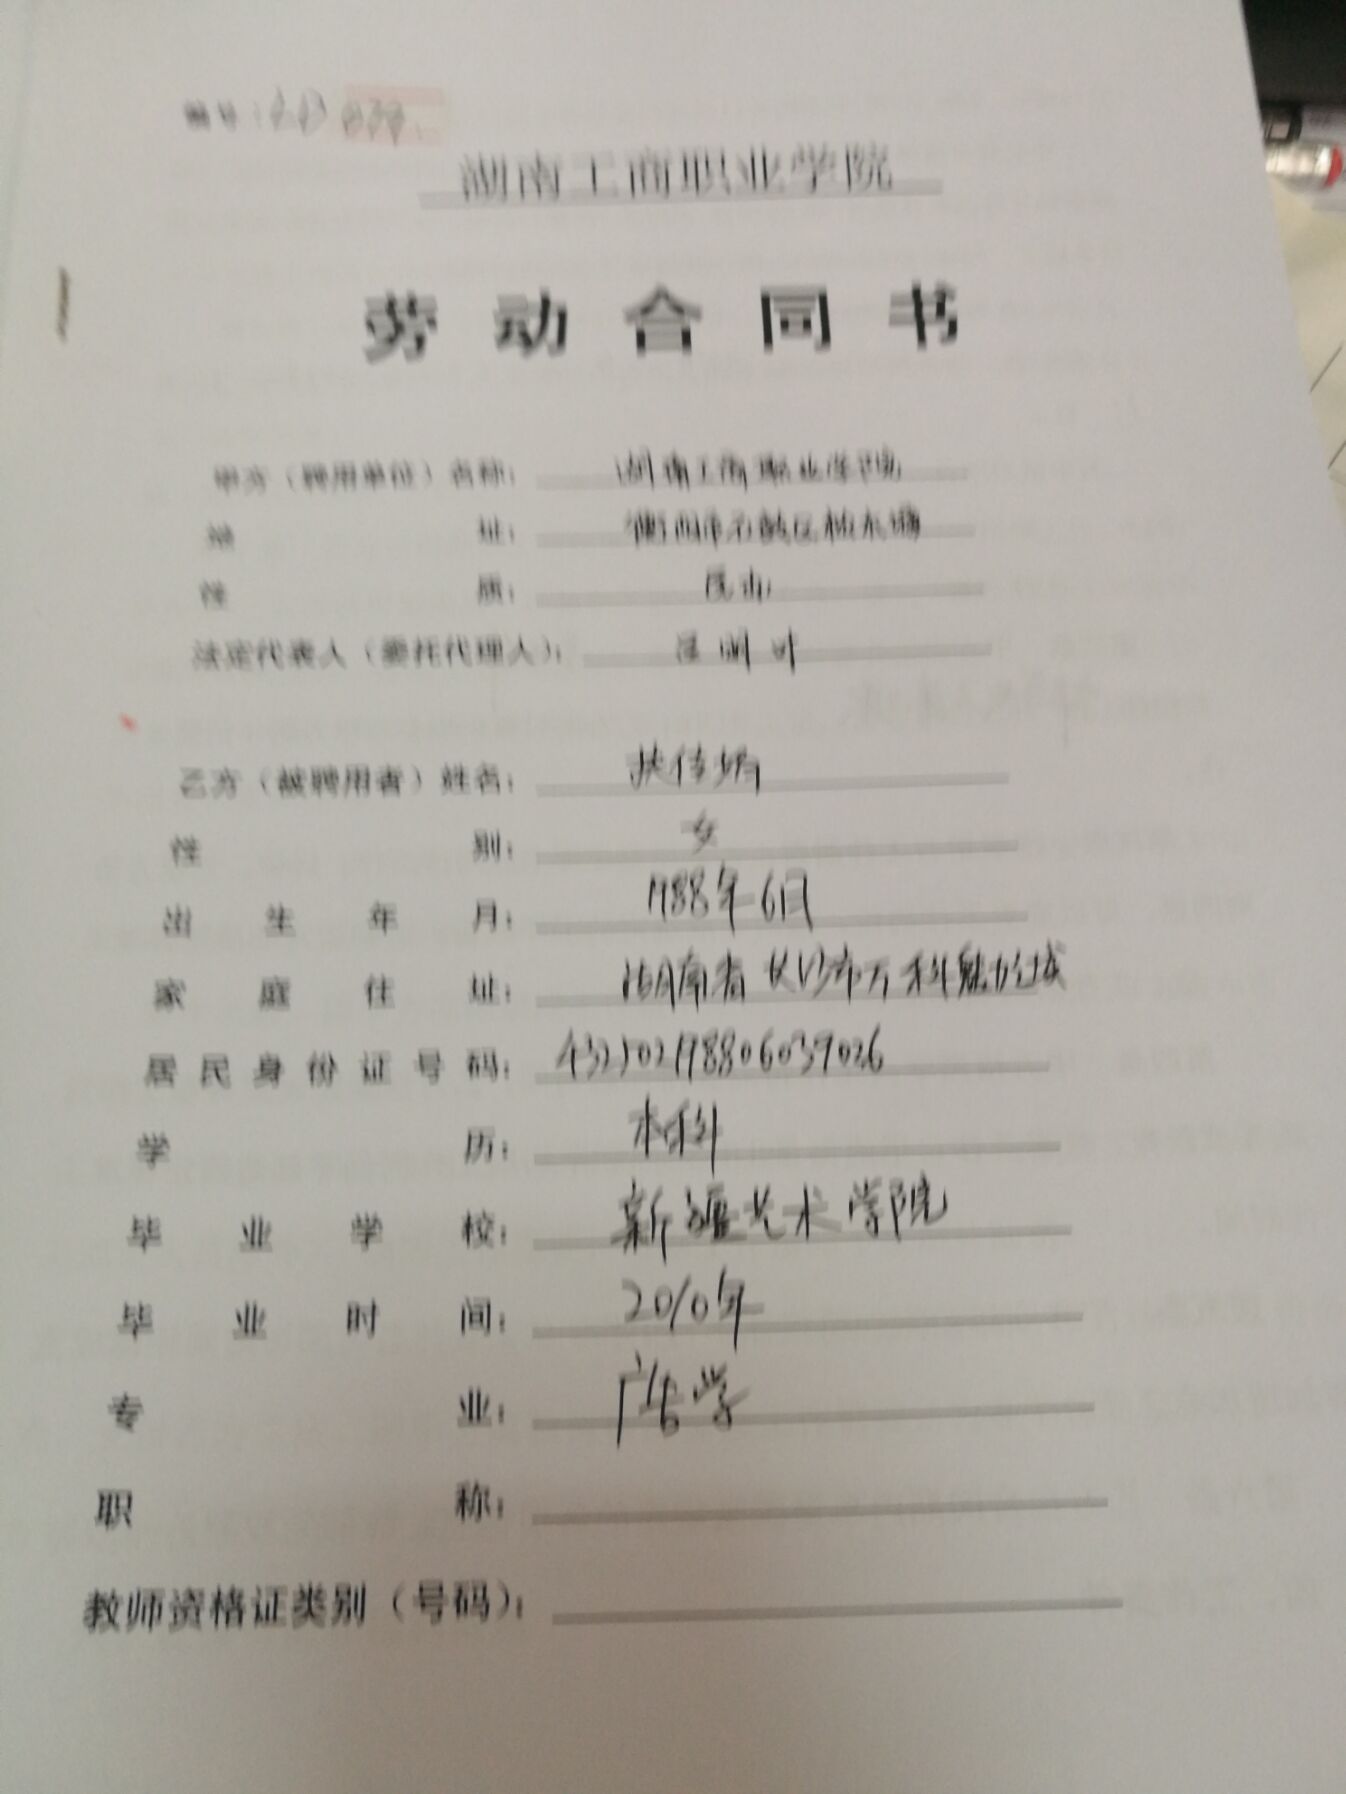 编号：
湖南工商职业学院
劳动合同书
甲方（聘用单位）名称： 湖南工商职业学院
地址： 衡阳市石鼓区松木塘
性质： 民办
法定代表人（委托代理人）：
乙方（被聘用者）姓名： 扶传娟
性别： 女
出生年月： 1988年6月
家庭住址： 湖南省长沙市万科魅力之城
居民身份证号码：
学历： 本科
毕业学校： 新疆艺术学院
毕业时间： 2010年
专业： 广告学
职称：
教师资格证类别（号码）：